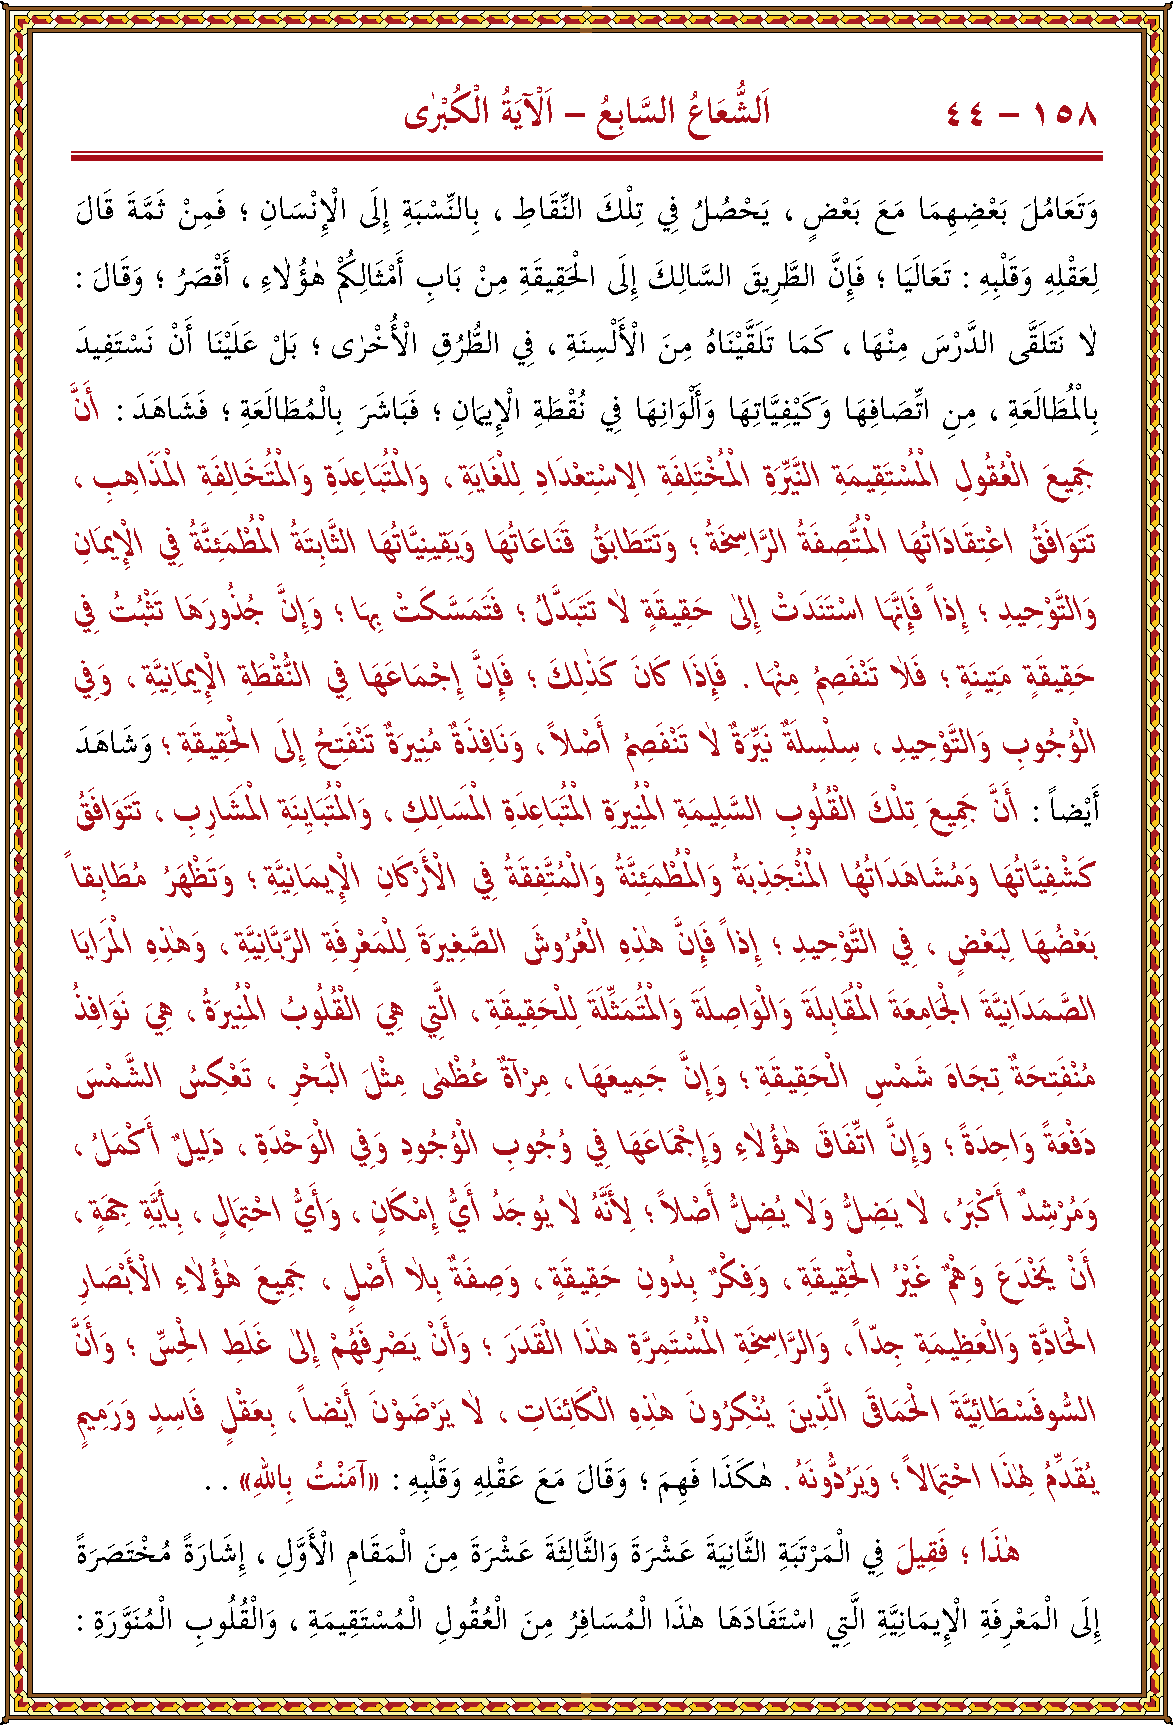 ١٥٨ – ٤٤ اَلشُّعَاعُ السَّابِعُ – اَلْآيَةُ الْكُبْرٰى
وَتَعَامُلَ بَعْضِهِمَا مَعَ بَعْضٍ ، يَحْصُلُ فِي تِلْكَ النِّقَاطِ ، بِالنِّسْبَةِ إِلَى الْإِنْسَانِ ؛ فَمِنْ ثَمَّةَ قَالَ
لِعَقْلِهِ وَقَلْبِهِ : تَعَالَيَا ؛ فَإِنَّ الطَّرِيقَ السَّالِكَ إِلَى الْحَقِيقَةِ مِنْ بَابِ أَمْثَالِكُمْ هٰؤُلَاءِ ، أَقْصَرُ ؛ وَقَالَ :
لَا نَتَلَقَّى الدَّرْسَ مِنْهَا ، كَمَا تَلَقَّيْنَاهُ مِنَ الْأَلْسِنَةِ ، فِي الطُّرُقِ الْأُخْرٰى ؛ بَلْ عَلَيْنَا أَنْ نَسْتَفِيدَ
بِالْمُطَالَعَةِ ، مِنِ اتِّصَافِهَا وَكَيْفِيَّاتِهَا وَأَلْوَانِهَا فِي نُقْطَةِ الْإِيمَانِ ؛ فَبَاشَرَ بِالْمُطَالَعَةِ ؛ فَشَاهَدَ : أَنَّ
جَمِيعَ الْعُقُولِ الْمُسْتَقِيمَةِ النَّيِّرَةِ الْمُخْتَلِفَةِ الِاسْتِعْدَادِ لِلْغَايَةِ ، وَالْمُتَبَاعِدَةِ وَالْمُتَخَالِفَةِ الْمَذَاهِبِ ،
تَتَوَافَقُ اعْتِقَادَاتُهَا الْمُتَّصِفَةُ الرَّاسِخَةُ ؛ وَتَتَطَابَقُ قَنَاعَاتُهَا وَيَقِينِيَّاتُهَا الثَّابِتَةُ الْمُطْمَئِنَّةُ فِي الْإِيمَانِ
وَالتَّوْحِيدِ ؛ إِذاً فَإِنَّهَا اسْتَنَدَتْ إِلٰى حَقِيقَةٍ لَا تَتَبَدَّلُ ؛ فَتَمَسَّكَتْ بِهَا ؛ وَإِنَّ جُذُورَهَا تَثْبُتُ فِي
حَقِيقَةٍ مَتِينَةٍ ؛ فَلَا تَنْفَصِمُ مِنْهَا . فَإِذَا كَانَ كَذٰلِكَ ؛ فَإِنَّ إِجْمَاعَهَا فِي النُّقْطَةِ الْإِيمَانِيَّةِ ، وَفِي
الْوُجُوبِ وَالتَّوْحِيدِ ، سِلْسِلَةٌ نَيِّرَةٌ لَا تَنْفَصِمُ أَصْلاً ، وَنَافِذَةٌ مُنِيرَةٌ تَنْفَتِحُ إِلَى الْحَقِيقَةِ ؛ وَشَاهَدَ
أَيْضاً : أَنَّ جَمِيعَ تِلْكَ الْقُلُوبِ السَّلِيمَةِ الْمُنِيرَةِ الْمُتَبَاعِدَةِ الْمَسَالِكِ ، وَالْمُتَبَايِنَةِ الْمَشَارِبِ ، تَتَوَافَقُ
كَشْفِيَّاتُهَا وَمُشَاهَدَاتُهَا الْمُنْجَذِبَةُ وَالْمُطْمَئِنَّةُ وَالْمُتَّفِقَةُ فِي الْأَرْكَانِ الْإِيمَانِيَّةِ ؛ وَتَظْهَرُ مُطَابِقاً
بَعْضُهَا لِبَعْضٍ ، فِي التَّوْحِيدِ ؛ إِذاً فَإِنَّ هٰذِهِ الْعُرُوشَ الصَّغِيرَةَ لِلْمَعْرِفَةِ الرَّبَّانِيَّةِ ، وَهٰذِهِ الْمَرَايَا
الصَّمَدَانِيَّةَ الْجَامِعَةَ الْمُقَابِلَةَ وَالْوَاصِلَةَ وَالْمُتَمَثِّلَةَ لِلْحَقِيقَةِ ، الَّتِي هِيَ الْقُلُوبُ الْمُنِيرَةُ ، هِيَ نَوَافِذُ
مُنْفَتِحَةٌ تِجَاهَ شَمْسِ الْحَقِيقَةِ ؛ وَإِنَّ جَمِيعَهَا ، مِرْآةٌ عُظْمٰى مِثْلَ الْبَحْرِ ، تَعْكِسُ الشَّمْسَ
دَفْعَةً وَاحِدَةً ؛ وَإِنَّ اتِّفَاقَ هٰؤُلَاءِ وَإِجْمَاعَهَا فِي وُجُوبِ الْوُجُودِ وَفِي الْوَحْدَةِ ، دَلِيلٌ أَكْمَلُ ،
وَمُرْشِدٌ أَكْبَرُ ، لَا يَضِلُّ وَلَا يُضِلُّ أَصْلاً ؛ لِأَنَّهُ لَا يُوجَدُ أَيُّ إِمْكَانٍ ، وَأَيُّ احْتِمَالٍ ، بِأَيَّةِ جِهَةٍ ،
أَنْ يَخْدَعَ وَهْمٌ غَيْرُ الْحَقِيقَةِ ، وَفِكْرٌ بِدُونِ حَقِيقَةٍ ، وَصِفَةٌ بِلَا أَصْلٍ ، جَمِيعَ هٰؤُلَاءِ الْأَبْصَارِ
الْحَادَّةِ وَالْعَظِيمَةِ جِدّاً ، وَالرَّاسِخَةِ الْمُسْتَمِرَّةِ هٰذَا الْقَدَرَ ؛ وَأَنْ يَصْرِفَهُمْ إِلٰى غَلَطِ الْحِسِّ ؛ وَأَنَّ
السُّوفَسْطَائِيَّةَ الْحَمَاقَى الَّذِينَ يُنْكِرُونَ هٰذِهِ الْكَائِنَاتِ ، لَا يَرْضَوْنَ أَيْضاً ، بِعَقْلٍ فَاسِدٍ وَرَمِيمٍ
يُقَدِّمُ لِهٰذَا احْتِمَالاً ؛ وَيَرُدُّونَهُ . هٰكَذَا فَهِمَ ؛ وَقَالَ مَعَ عَقْلِهِ وَقَلْبِهِ : «آمَنْتُ بِاللهِ» . .
هٰذَا ؛ فَقِيلَ فِي الْمَرْتَبَةِ الثَّانِيَةَ عَشْرَةَ وَالثَّالِثَةَ عَشْرَةَ مِنَ الْمَقَامِ الْأَوَّلِ ، إِشَارَةً مُخْتَصَرَةً
إِلَى الْمَعْرِفَةِ الْإِيمَانِيَّةِ الَّتِي اسْتَفَادَهَا هٰذَا الْمُسَافِرُ مِنَ الْعُقُولِ الْمُسْتَقِيمَةِ ، وَالْقُلُوبِ الْمُنَوَّرَةِ :